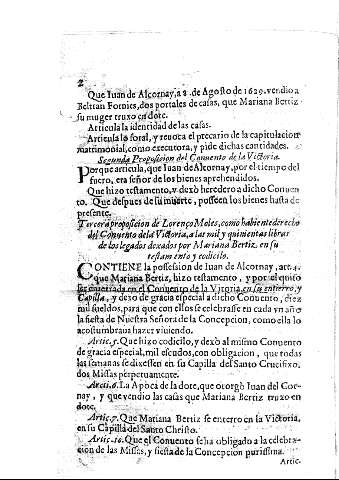 2
Que Iuan de Alcornay, a 8. de Agosto de 1629. vendio a
Beltran Fornies, dos portales de casas, que Mariana Bertiz
su muger truxo en dote.
Articula la identidad de las casas.
Articula lo foral, y reuoca el precario de la capitulacion
matrimonial, como executora, y pide dichas cantidades.
Segunda Proposicion del Conuento de la Victoria.
Porque articula, que Iuan de Alcornay, por el tiempo del
fuero, era señor de los bienes aprehendidos.
Que hizo testamento, y dexò heredero a dicho Conuen
to. Que despues de su muerte, posseen los bienes hasta de
presente.
Tercera proposicion de Lorenço Moles, como habiente derecho
del Conuento de la Victoria, a las mil y quinientas libras
de los legados dexados por Mariana Bertiz, en su
testamento y codicilo.
CONTIENE la possession de Iuan de Alcornay, art. 4.
que Mariana Bertiz, hizo testamento, y por el quiso
ser enterrada en el Conuento de la Vitoria en su entierro, y
Capilla, y dexo de gracia especial a dicho Conuento, diez
mil sueldos, para que con ellos se celebrasse en cada vn año
la fiesta de Nuestra Señora de la Concepcion, como ella lo
acostumbraua hazer viuiendo.
Artic. 5. Que hizo codicilo, y dexò al mismo Conuento
de gracia especial, mil escudos, con obligacion, que todas
las semanas se dixessen en su Capilla del Santo Crucifixo,
dos Missas perpetuamente.
Artic. 6. La Apoca de la dote, que otorgò Iuan del Cor-
nay, y que vendio las casas que Mariana Bertiz truxo en
dote.
Artic. 7. Que Mariana Bertiz se enterro en la Victoria,
en su Capilla del Santo Christo.
Artic. 10. Que el Conuento se ha obligado a la celebra-
cion de las Missas, y fiesta de la Concepcion purissima.
Artic-